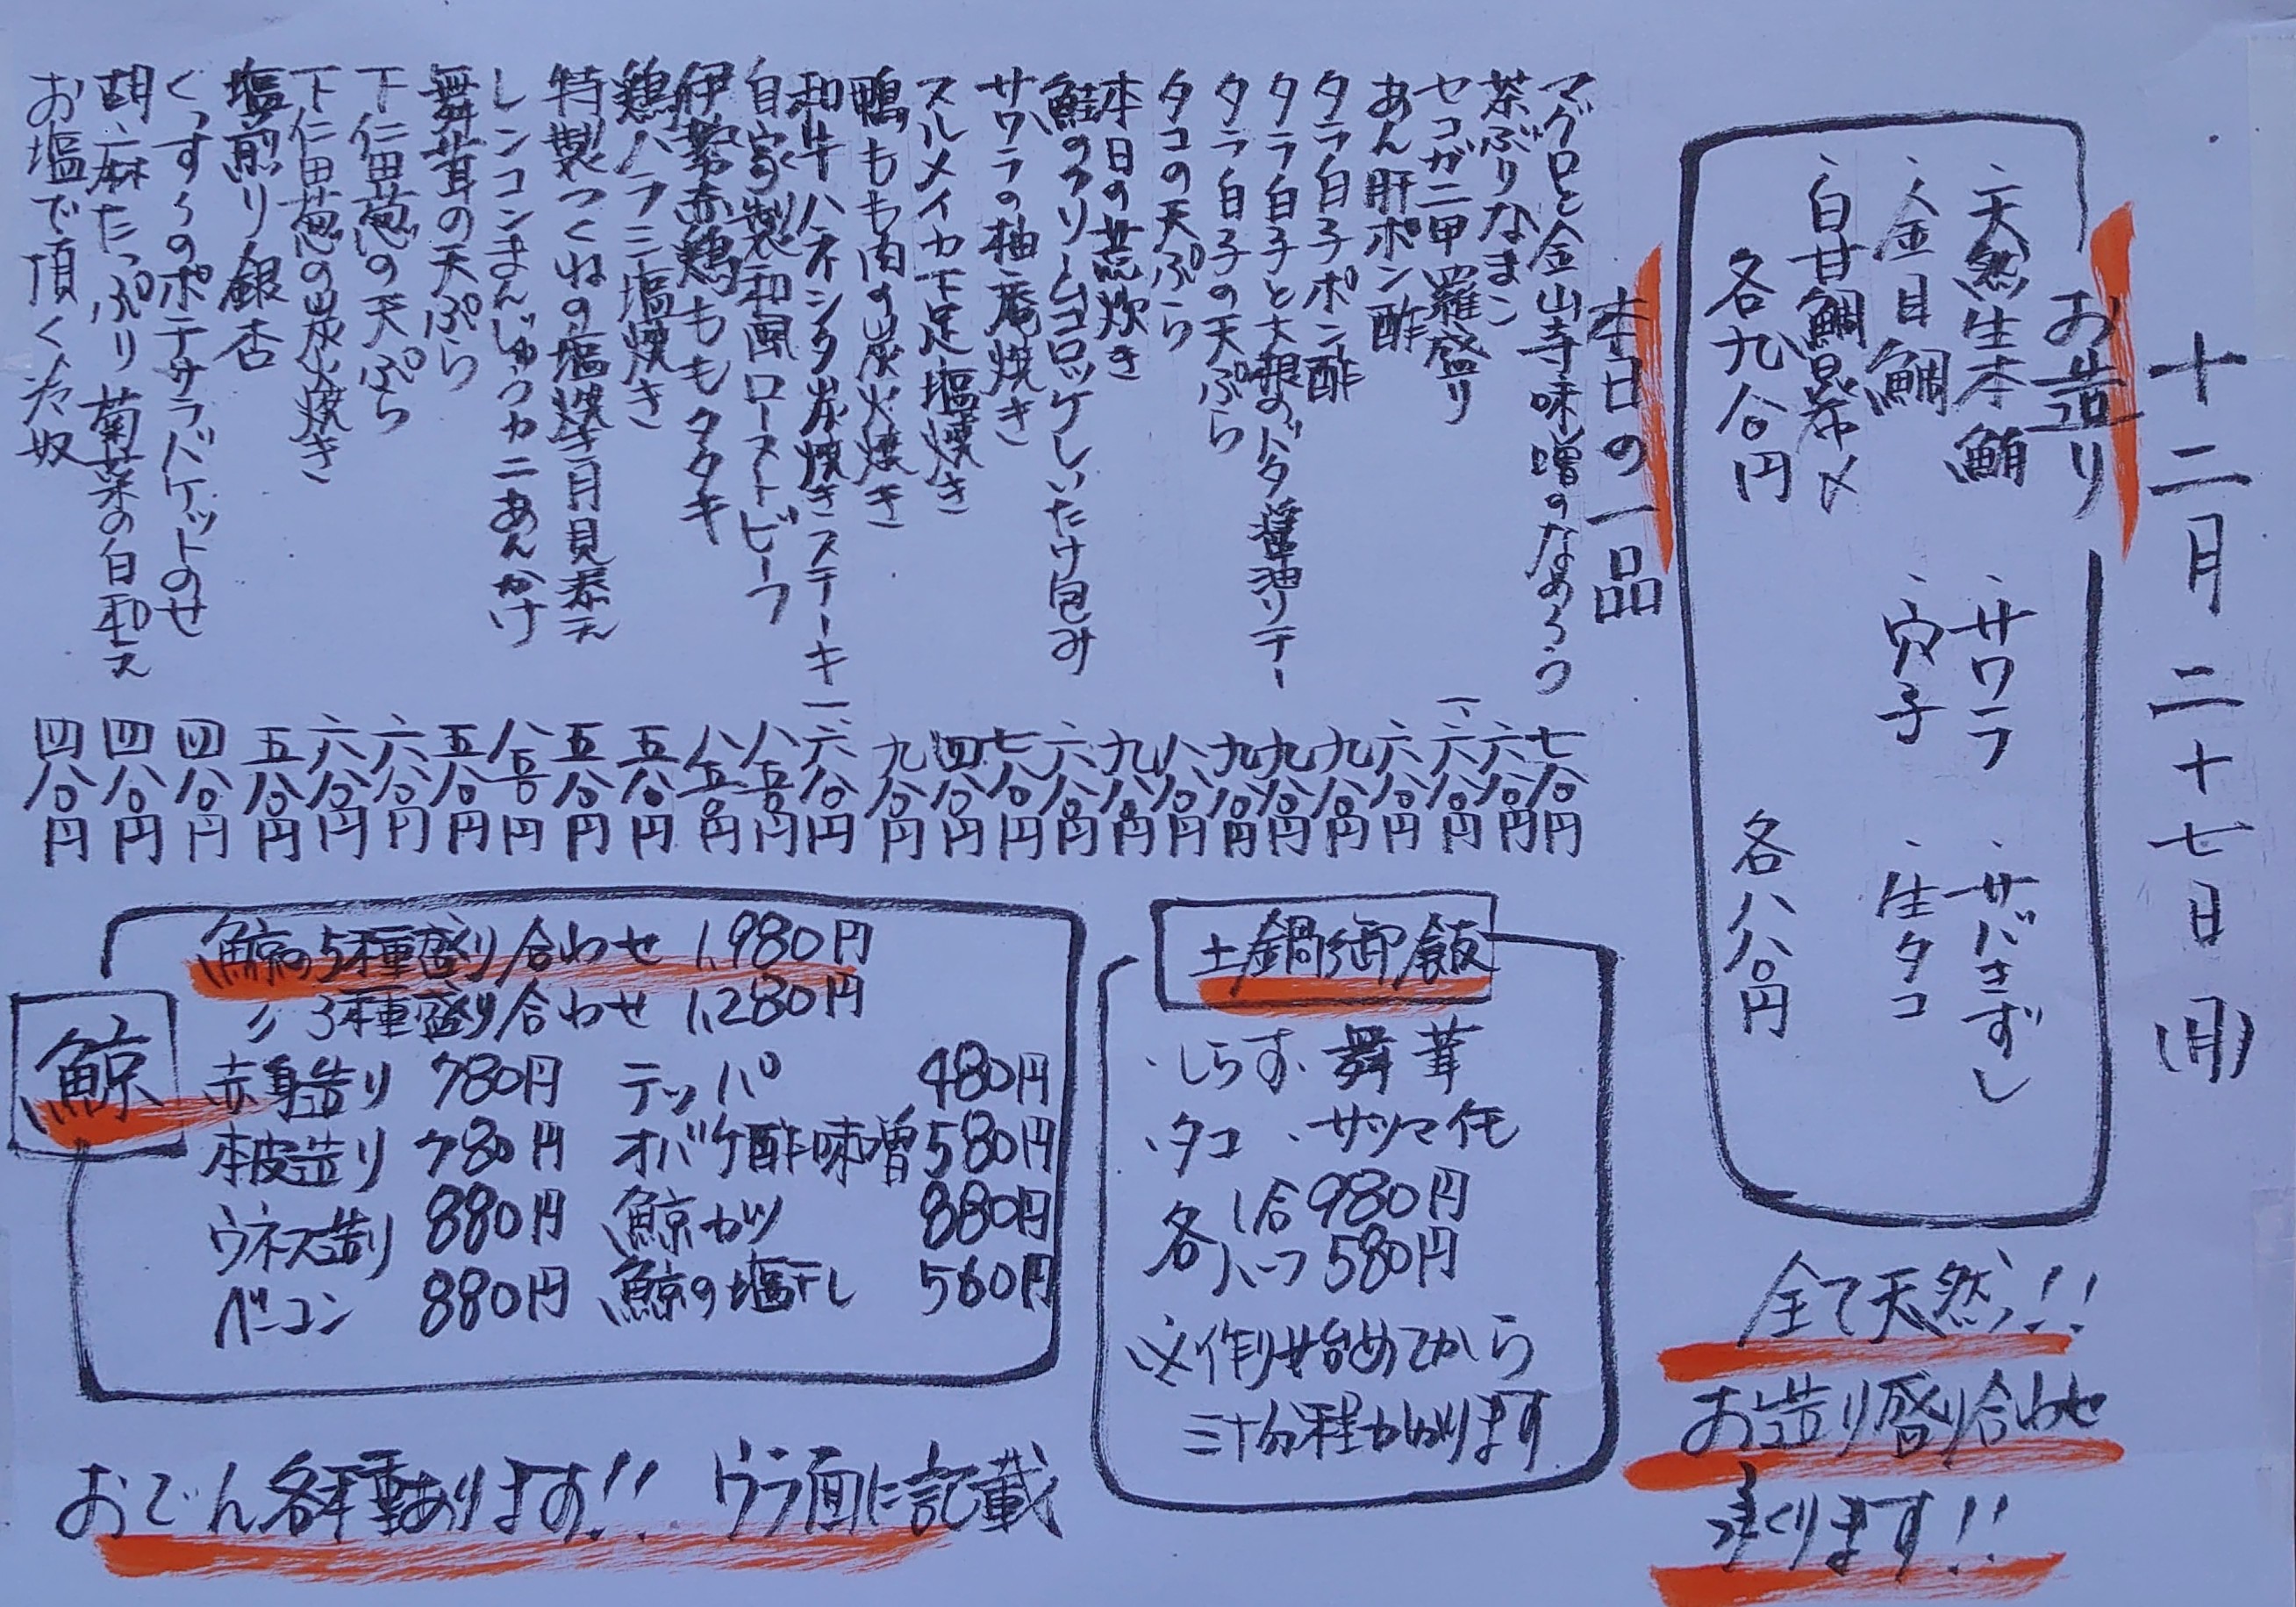 十二月二十七日(月)
お造り
・天然生本鮪 ・サワラ ・サバきずし
・金目鯛 ・穴子 ・生タコ
・白甘鯛昆布〆
各九八〇円 各八八〇円
全て天然!!
お造り盛り合わせ
承ります!!
本日の一品
マグロと金山寺味噌のなめろう 七八〇円
茶ぶりなまこ 六八〇円
セコガニ甲羅盛り 一、六八〇円
あん肝ポン酢 六八〇円
タラ白子ポン酢 九八〇円
タラ白子と大根のバタ醤油ソテー 九八〇円
タラ白子の天ぷら 九八〇円
タコの天ぷら 八八〇円
本日の荒炊き 九八〇円
鮭のクリームコロッケしいたけ包み 六八〇円
サワラの柚庵焼き 七八〇円
スルメイカ下足塩焼き 四八〇円
鴨もも肉の炭火焼き 九八〇円
和牛ハネシタ炭焼きステーキ 一、六八〇円
自家製和風ローストビーフ 八五〇円
伊勢赤鶏ももタタキ 八五〇円
鶏ハラミ塩焼き 五八〇円
特製つくねの塩焼き月見添え 五八〇円
レンコンまんじゅうカニあんかけ 八五〇円
舞茸の天ぷら 五八〇円
下仁田葱の天ぷら 六八〇円
下仁田葱の炭火焼き 六八〇円
塩煎り銀杏 五八〇円
くっすぅのポテサラバケットのせ 四八〇円
胡麻たっぷり菊菜の白和え 四八〇円
お塩で頂く冷奴 四八〇円
土鍋御飯
・しらす ・舞茸
・タコ ・サツマイモ
各1合 980円
各ハーフ 580円
※作り始めてから
三十分程かかります
鯨
鯨の5種盛り合わせ 1,980円
〃 3種盛り合わせ 1,280円
赤身造り 780円 テッパ 480円
本皮造り 780円 オバケ酢味噌 580円
ウネス造り 880円 鯨カツ 880円
ベーコン 880円 鯨の塩干し 560円
おでん各種あります!! ウラ面に記載